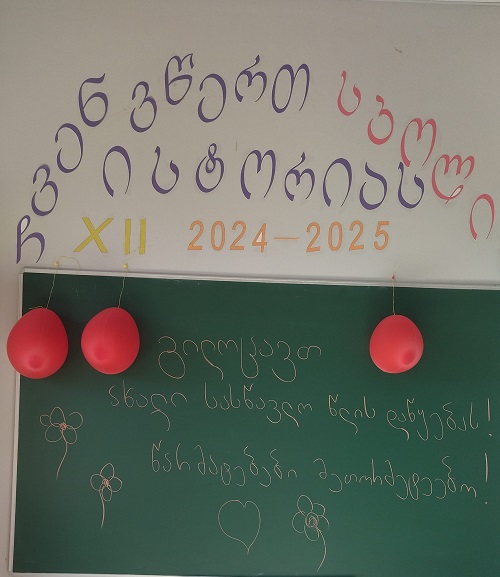 ჩვენ ვწერთ სკოლის
ისტორიას
XII 2024-2025
გილოცავთ
ახალი სასწავლო წლის დაწყებას!
წარმატებები მეთორმეტეებო!